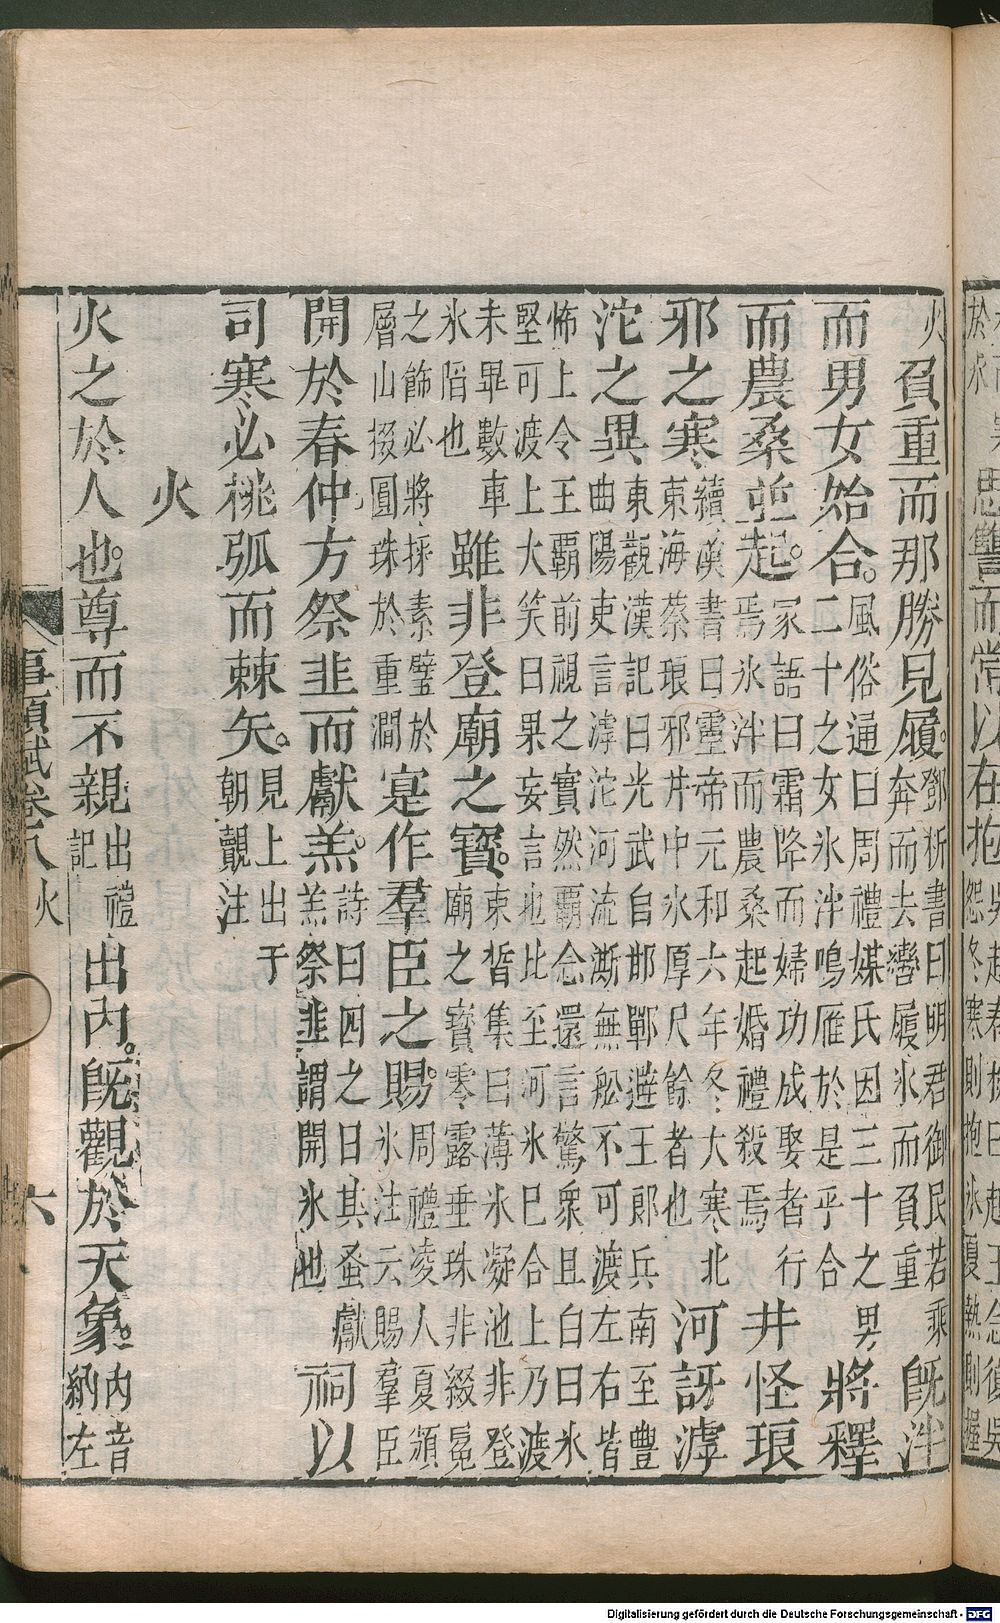 於冰
思讐而常以在抱吳越春秋曰越王念復吳怨冬寒則抱冰夏熱則握
火負重而那勝見履。鄧析書曰明君御民若乘奔而去轡履冰而負重既泮
而男女始合。風俗通曰周禮媒氏因三十之男二十之女冰泮鳴雁於是乎合將釋
而農桑並起。家語曰霜降而婦功成娶者行焉冰泮而農桑起婚禮殺焉井怪琅
邪之寒續漢書曰靈帝元和六年冬大寒北東海蔡琅邪井中冰厚尺餘者也河訝滹
沱之異東觀漢記曰光武自邯鄲避王郎兵南至豐曲陽吏言滹沱河流澌無舩不可渡左右皆
怖上令王覇前視之實然覇念還言驚衆且白曰冰堅可渡上大笑曰果妄言也比至河冰巳合上乃渡
未畢數車冰陷也雖非登廟之寳。束皙集曰薄冰凝池非登廟之寳零露垂珠非綴冕
之飾必將採素璧於層山掇圓珠於重澗寔作羣臣之賜。周禮凌人夏頒冰注云賜羣臣
開於春仲方祭韭而獻羔。詩曰四之日其蚤獻羔祭韭謂開冰也祠以
司寒必桃弧而棘矢。見上出于朝覿注
火
火之於人也。尊而不親出禮記出内。既觀於天象。内音納左
事類賦卷八 火 六
Digitalisierung gefördert durch die Deutsche Forschungsgemeinschaft - DFG